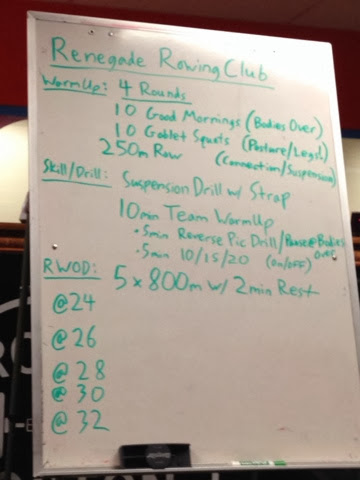 Renegade Rowing Club
WarmUp: 4 Rounds
10 Good Mornings (Bodies Over)
10 Goblet Squats (Posture/Legs!)
250m Row (Connection/Suspension)
Skill/Drill: Suspension Drill w/ Strap
10min Team WarmUp
• 5min Reverse Pic Drill/Pause @ Bodies Over
• 5min 10/15/20 (on/off)
RWOD: 5 x 800m w/ 2min Rest
@24
@26
@28
@30
@32